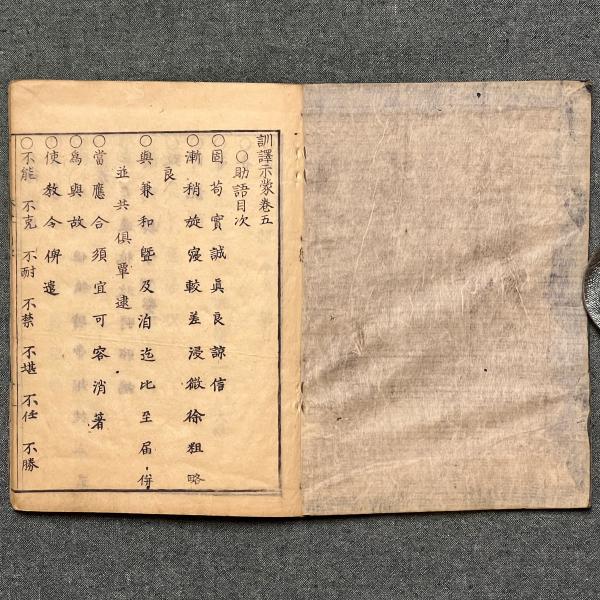 訓譯示蒙卷五
○○助語目次
○固苟實誠眞良諒信
○漸稍旋寖較差浸微徐粗略
良
○與兼和曁及洎迄比至届併
並共俱覃逮
○當應合須宜可容消著
○爲與故
○使教令俾遣
○不能 不克 不耐 不禁 不堪 不任 不勝